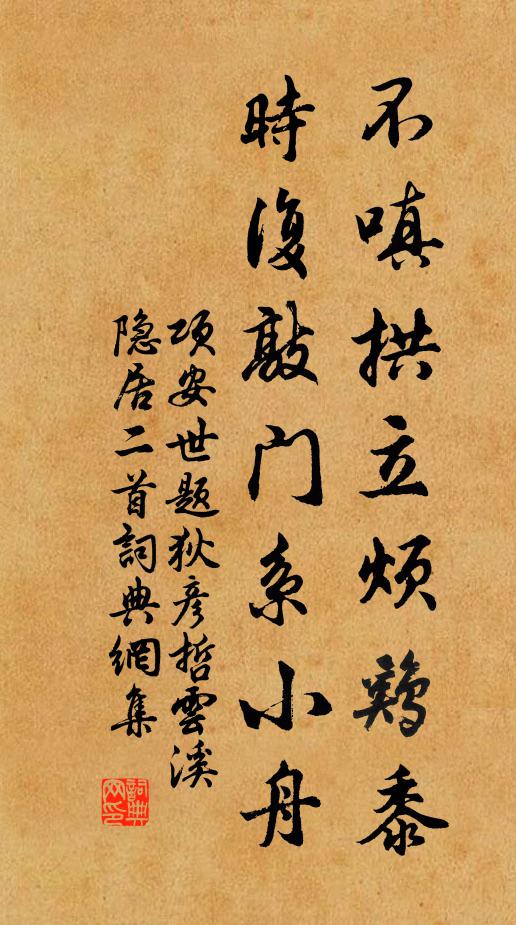 不嗔拱立烦鷄黍
時復敲门系小舟
项安世题狄彦哲雲溪
隐居二首詞典網集
詞典网印